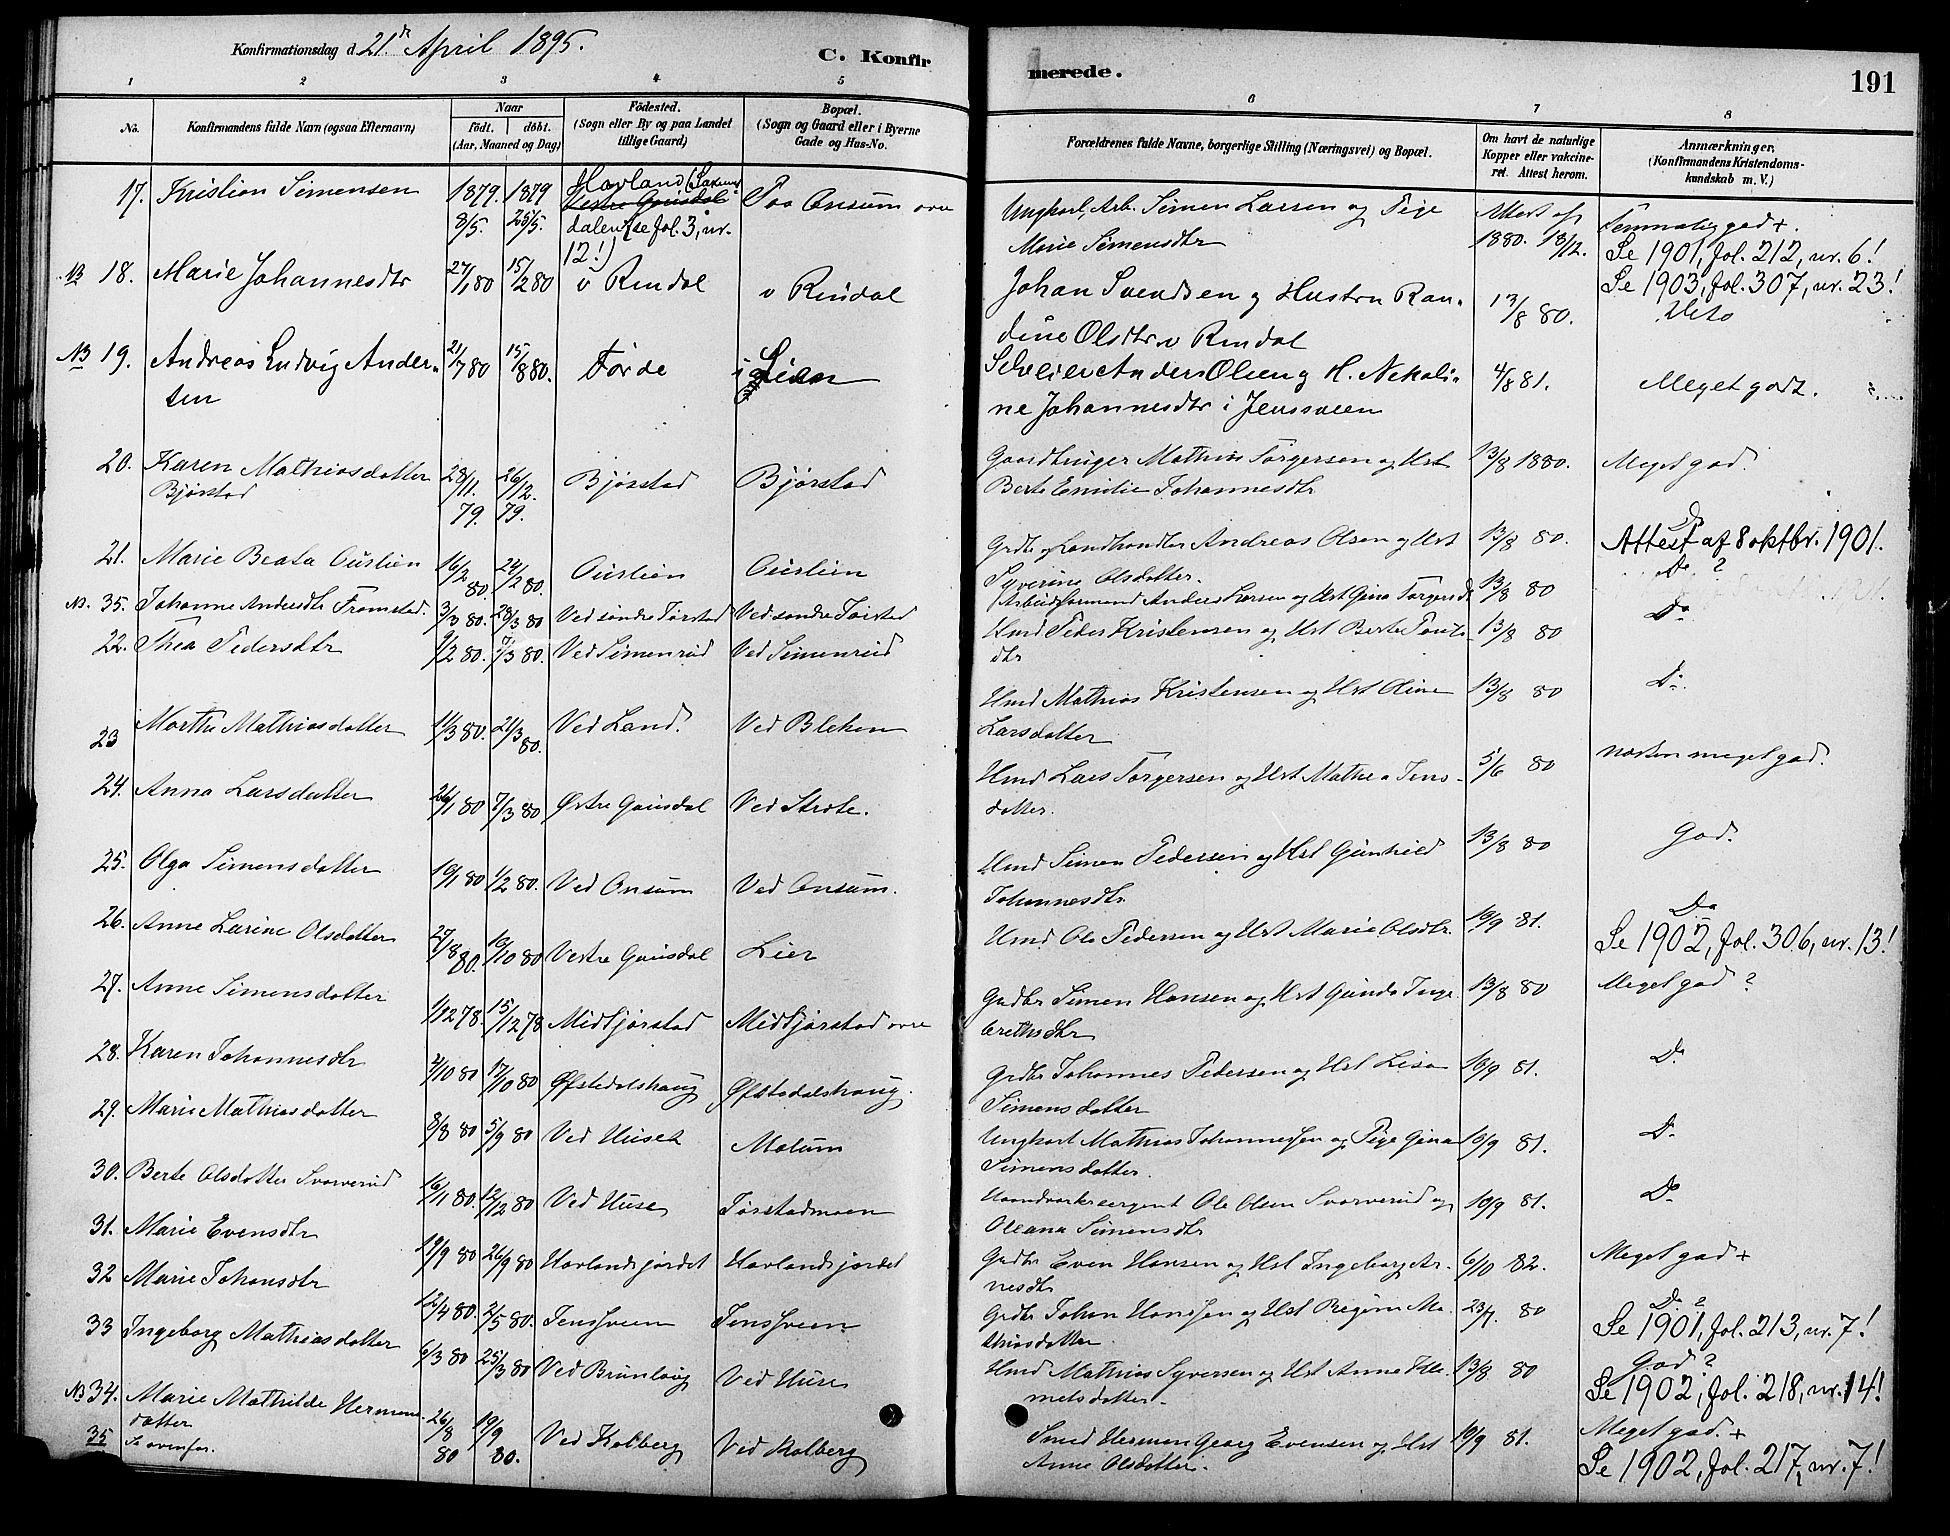 Konfirmationsdag d. 21de April 1895.
C. Konfirmerede.
191
1 2 3 4 5 6 7 8
No.
Konfirmandens fulde Navn (ogsaa Efternavn)
Naar
födt. döbt.
(Aar, Maaned og Dag)
Födested.
(Sogn eller By og paa Landet
tillige Gaard)
Bopæl.
(Sogn og Gaard eller i Byerne
Gade og Hus-No.
Forældrenes fulde Navne, borgerlige Stilling (Næringsvei) og Bopæl.
Om havt de naturlige
Kopper eller vakcine-
ret. Attest herom.
Anmærkninger.
(Konfirmandens Kristendoms-
kundskab m. V.)
17. Kristian Simensen 1879. 8/5. 1879 25/5. Havland
Vestre Gausdal
dalen (se fol. 3, nr.
12!)
Paa Onsum øvre
Ungkarl, Arb. Simen Larsen og Pige
Marie Simensdtr
Attest af
1880. 13/12.
Temmelig god +.
Se 1901, fol. 212, nr. 6!
NB 18. Marie Johannesdtr 27/1 80 15/2 80 v Rindal v Rindal
Johan Svendsen og Hustru Ran-
dine Olsdtr v Rindal
13/8 80.
Se 1903, fol. 307, nr. 23!
NB 19. Andreas Ludvig Ander-
sen
21/7 80 15/8 80. Førde i Lien
Selveier Anders Olsen og H. Nekoli-
ne Johannesdtr i Jenssveen
4/8 81. Meget godt.
20. Karen Mathiasdatter
Bjørstad
28/11. 79. 26/12. 79. Bjørstad Bjørstad
Gaardbruger Mathias Torgersen og Hst
Berte Emilie Johannesdtr
13/8 1880. Meget god.
21. Marie Beata Aurlien 16/2 80. 24/2 80. Aurlien Aurlien
Grdbr og Landhandler Andreas Olsen og Hst
Syverine Olsdatter.
13/8 80. Do
Attest af 8 oktbr. 1901.
NB. 35. Johanne Andersdtr Framstad. 3/3 80. 28/3 80 Ved søndre Tørstad Ved søndre Tørstad
Arbeidsformand Anders Larsen og Hst Gina Torgersd. 13/8 80 Do ?
22. Thea Pedersdtr 1/2 80. 7/3 80. Ved Simenrud Ved Simenrud
Hmd Peder Kristensen og Hst Berte Pauls-
dtr
13/8 80 Do
23 Marthe Mathiasdatter 11/3 80. 21/3 80. Ved Land. Ved Bleken
Hmd Mathias Kristensen og Hst Oline
Larsdatter
13/8 80 Do.
24. Anna Larsdatter 26/1 80 7/3 80 Østre Gausdal Ved Strøte.
Hmd Lars Torgersen og Hst Mathea Jens-
datter.
5/6 80 næsten meget god.
25. Olga Simensdatter 10/1 80 1/2 80. Ved Onsum Ved Onsum.
Hmd Simen Pedersen og Hst Gunhild
Johannesdtr.
13/8 80 God.
26. Anne Larine Olsdatter 27/8 80. 10/10 80 Vestre Gausdal Lier
Hmd Ole Pedersen og Hst Marie Olsdtr. 10/9 81. Do
Se 1902, fol. 306, nr. 13!
27. Anne Simensdatter 1/12 78. 15/12 78 Midtjørstad Midtjørstad øvre
Grdbr Simen Hansen og Hst Gunda Inge-
brethsdtr
13/8 80 Meget god ?
28. Karen Johannesdtr 2/10 80 17/10 80 Øfstedalshaug Øfstedalshaug.
Grdbr Johannes Pedersen og Hst Lisa
Simensdatter
10/9 81. Do
29. Marie Mathiasdatter 8/8 80 5/9 80 Ved Huset Molum
Ungkarl Mathias Johannessen og Pige Gina
Simensdatter.
10/9 81. Do
30. Berte Olsdatter Svarverud 16/11 80. 12/12 80 Ved Huse Tørstadmoen
Haandværkersergent Ole Olsen Svarverud og
Oleana Simensdtr
10/9 81. Do
31. Marie Evensdtr 19/9 80 26/9 80 Havlandsjordet Havlandsjordet
Grdbr Even Hansen og Hst Ingeborg Ar-
nesdtr
6/10 82. Meget god +
32 Marie Johansdtr 12/4 80. 2/5 80. Jenssveen Jenssveen
Grdbr Johan Hanssen og Hst Regine Ma-
thiasdatter
23/7. 80 Do ?
Se 1901, fol. 213, nr. 7!
33 Ingeborg Mathiasdatter 6/3 80 25/3 80 Ved Brunlaug Ved Huse
Hmd Mathias Syversen og Hst Anne Hel-
metsdatter.
13/8 80 God ?
Se 1902, fol. 218, nr. 14!
NB 34. Marie Mathilde Hermans-
datter
26/8 80 19/9 80. Ved Kolberg Ved Kolberg
Smed Herman Georg Evensen og Hst
Anne Olsdatter.
10/9 81. Meget god. +
Se 1902, fol. 217, nr. 7!
35 Se ovenfor.